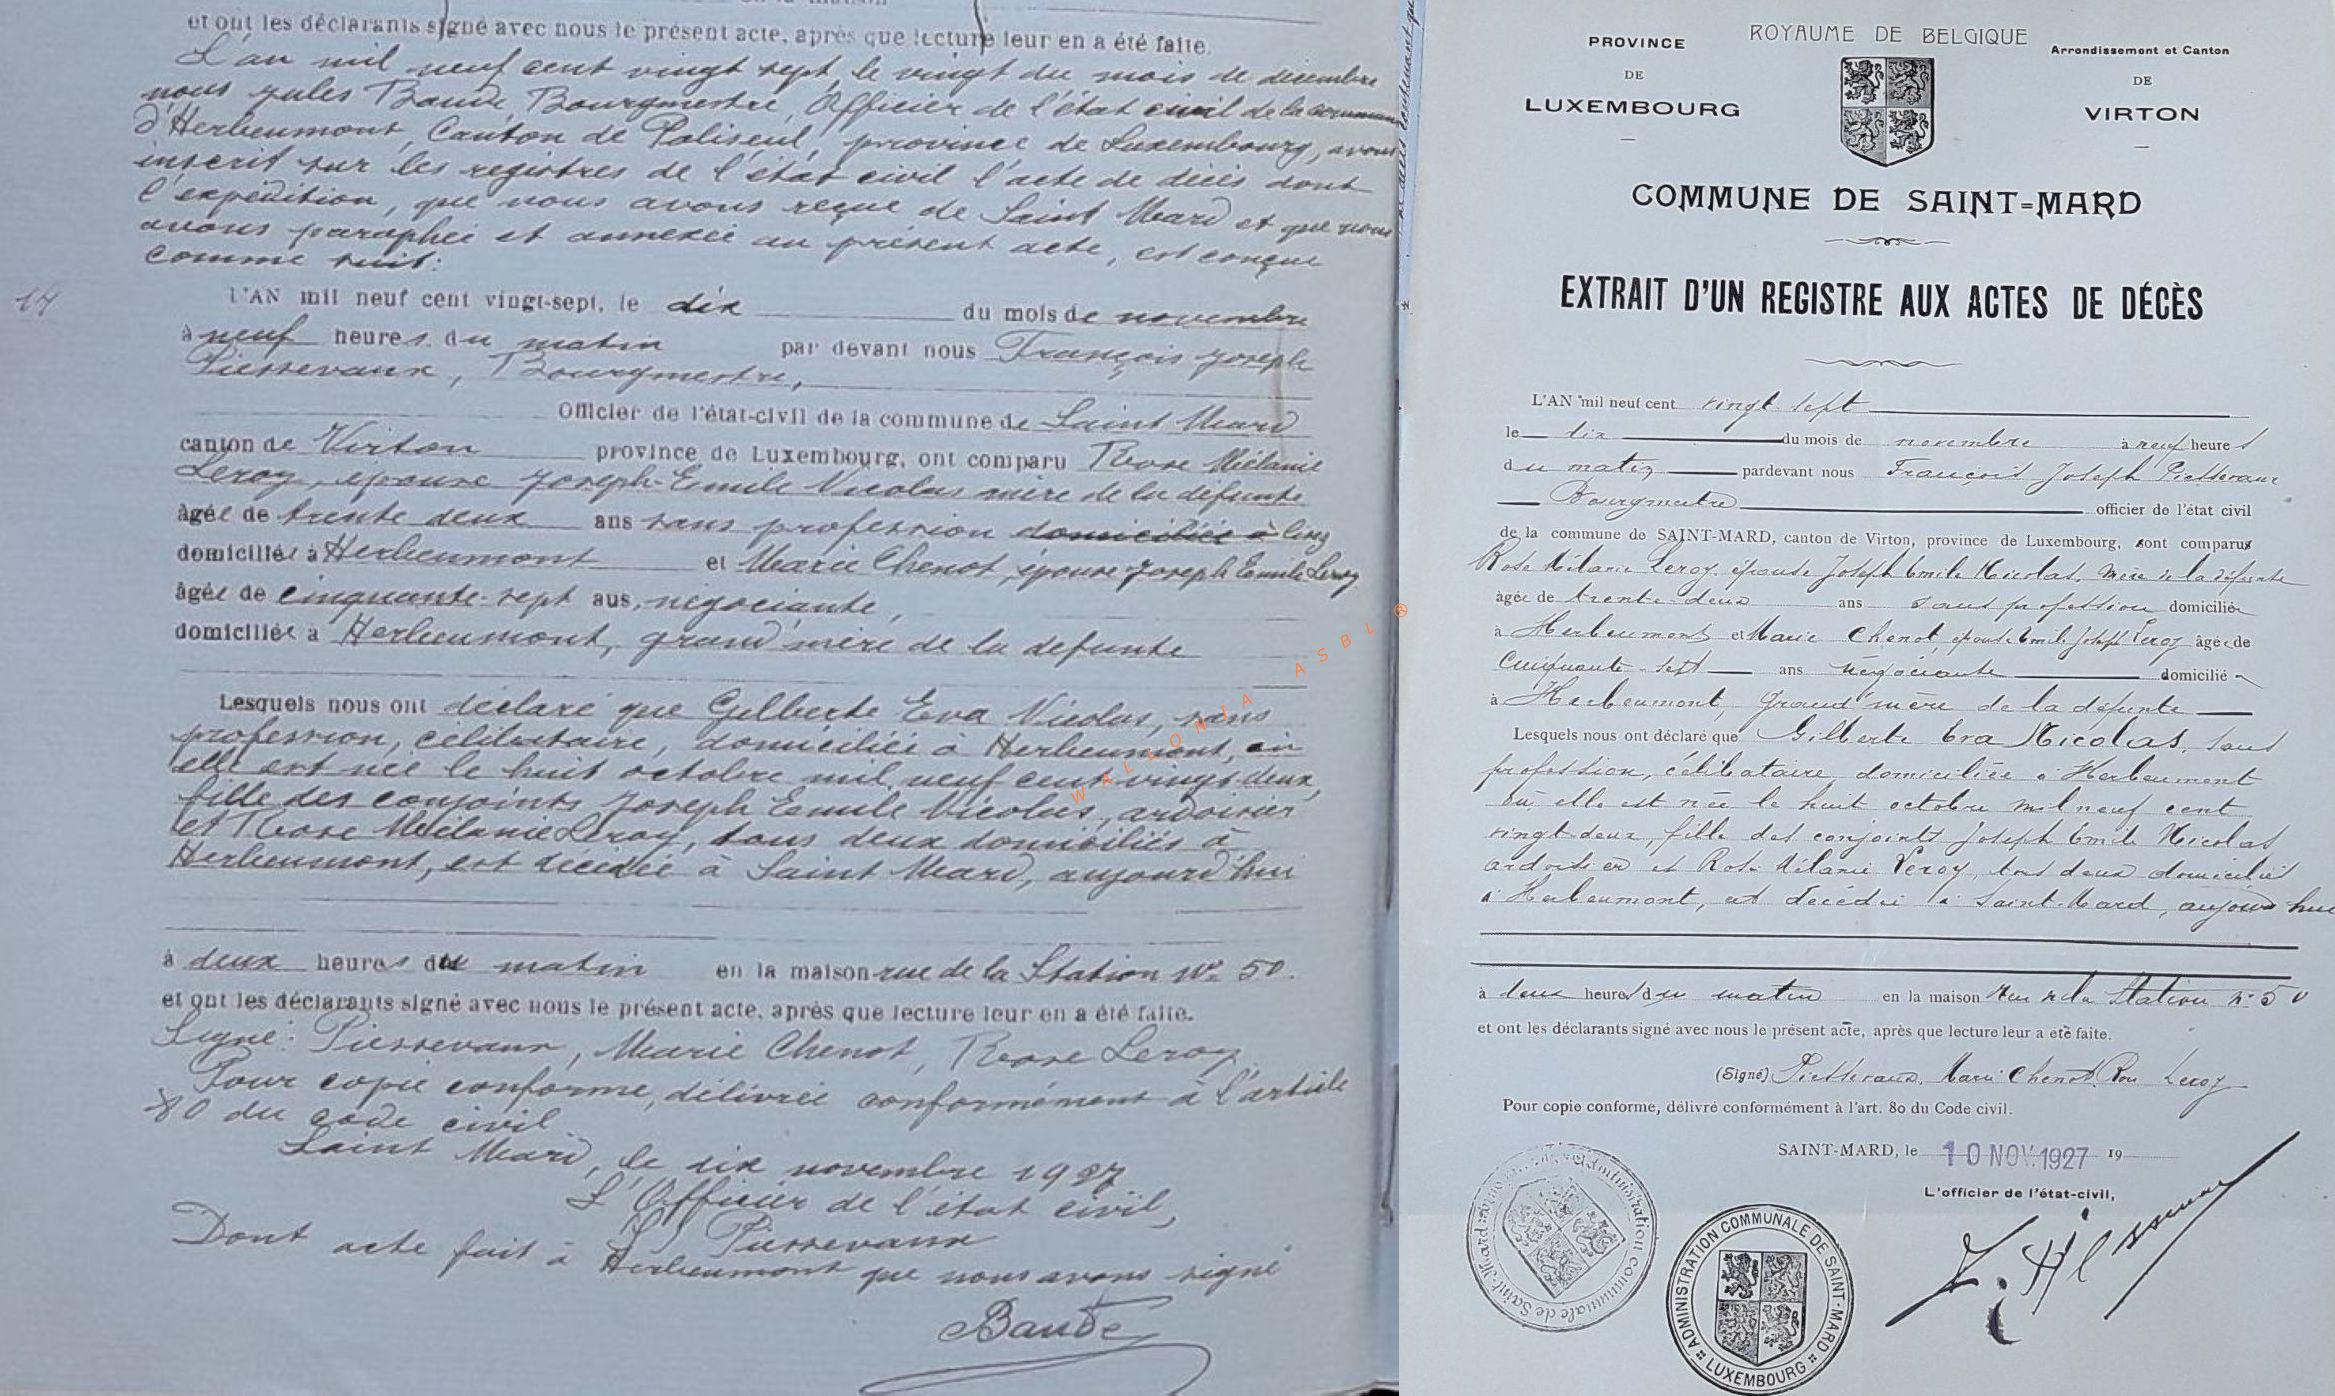 et ont les déclarants signé avec nous le présent acte, après que lecture leur en a été faite.
L'an mil neuf cent vingt sept, le vingt du mois de décembre
nous Jules Baude, Bourgmestre, Officier de l'état civil de la commune
d'Herbeumont, Canton de Paliseul, province de Luxembourg, avons
inscrit sur les registres de l'état civil l'acte de décès dont
l'expédition, que nous avons reçue de Saint Mard et que nous
avons paraphée et annexée au présent acte, est conçue
comme suit:
L'AN mil neuf cent vingt-sept, le dix du mois de novembre
à neuf heures du matin par devant nous François Joseph
Piessevaux, Bourgmestre,
Officier de l'état-civil de la commune de Saint Mard
canton de Virton province de Luxembourg, ont comparu Rose Mélanie
Leroy, épouse Joseph-Emile Nicolas mère de la défunte
âgée de trente deux ans sans profession domiciliée à
domiciliée à Herbeumont et Marie Chenot, épouse Joseph Emile Leroy
âgée de cinquante-sept ans, négociante,
domiciliée à Herbeumont, grand'mère de la défunte
Lesquels nous ont déclaré que Gilberte Eva Nicolas, sans
profession, célibataire, domiciliée à Herbeumont, où
elle est née le huit octobre mil neuf cent vingt deux,
fille des conjoints Joseph Emile Nicolas, ardoisier
et Rose Mélanie Leroy, tous deux domiciliés à
Herbeumont, est décédée à Saint Mard, aujourd'hui
à deux heures du matin en la maison rue de la Station N° 50.
et ont les déclarants signé avec nous le présent acte, après que lecture leur en a été faite.
Signé: Piessevaux, Marie Chenot, Rose Leroy,
Pour copie conforme, délivrée conformément à l'article
80 du code civil
Saint Mard, le dix novembre 1927
L'Officier de l'état civil,
Piessevaux
Dont acte fait à Herbeumont que nous avons signé
Baude
17
WALLONIA ASBL ®
ROYAUME DE BELGIQUE
PROVINCE
DE
LUXEMBOURG
Arrondissement et Canton
DE
VIRTON
COMMUNE DE SAINT=MARD
EXTRAIT D'UN REGISTRE AUX ACTES DE DÉCÈS
L'AN mil neuf cent vingt sept
le dix du mois de novembre à neuf heures
du matin pardevant nous François Joseph Piessevaux
Bourgmestre officier de l'état civil
de la commune de SAINT-MARD, canton de Virton, province de Luxembourg, sont comparus
Rose Mélanie Leroy, épouse Joseph Emile Nicolas, mère de la défunte
âgée de trente-deux ans sans profession domiciliée
à Herbeumont et Marie Chenot, épouse Emile Joseph Leroy âgée de
Cinquante-sept ans négociante domicilié
à Herbeumont, grand'mère de la défunte
Lesquels nous ont déclaré que Gilberte Eva Nicolas, sans
profession, célibataire domiciliée à Herbeumont
où elle est née le huit octobre mil neuf cent
vingt deux, fille des conjoints Joseph Emile Nicolas
ardoisier et Rose Mélanie Leroy, tous deux domiciliés
à Herbeumont, est décédée à Saint-Mard, aujourd'hui
à deux heures du matin en la maison Rue de la Station N° 50
et ont les déclarants signé avec nous le présent acte, après que lecture leur a été faite.
(Signé) Piessevaux, Marie Chenot, Rose Leroy
Pour copie conforme, délivré conformément à l'art. 80 du Code civil.
SAINT-MARD, le 10 NOV. 1927 19
L'officier de l'état-civil,
ADMINISTRATION COMMUNALE DE SAINT-MARD
LUXEMBOURG